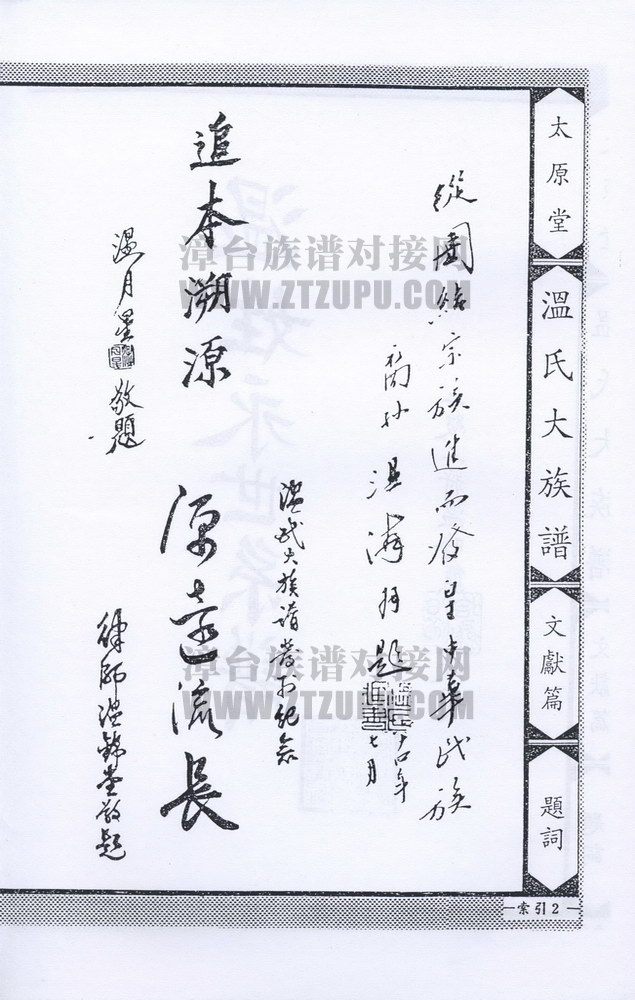 太原堂
溫氏大族譜
文獻篇
題詞
索引2
從團結宗族進而發皇中華民族
裔孙温海拜題
七月
追本溯源
溫月星
敬題
溫氏大族譜發刊紀念
源遠流長
律師溫錦堂敬題
漳台族谱对接网
WWW.ZTZUPU.COM
漳台族谱对接网
WWW.ZTZUPU.COM